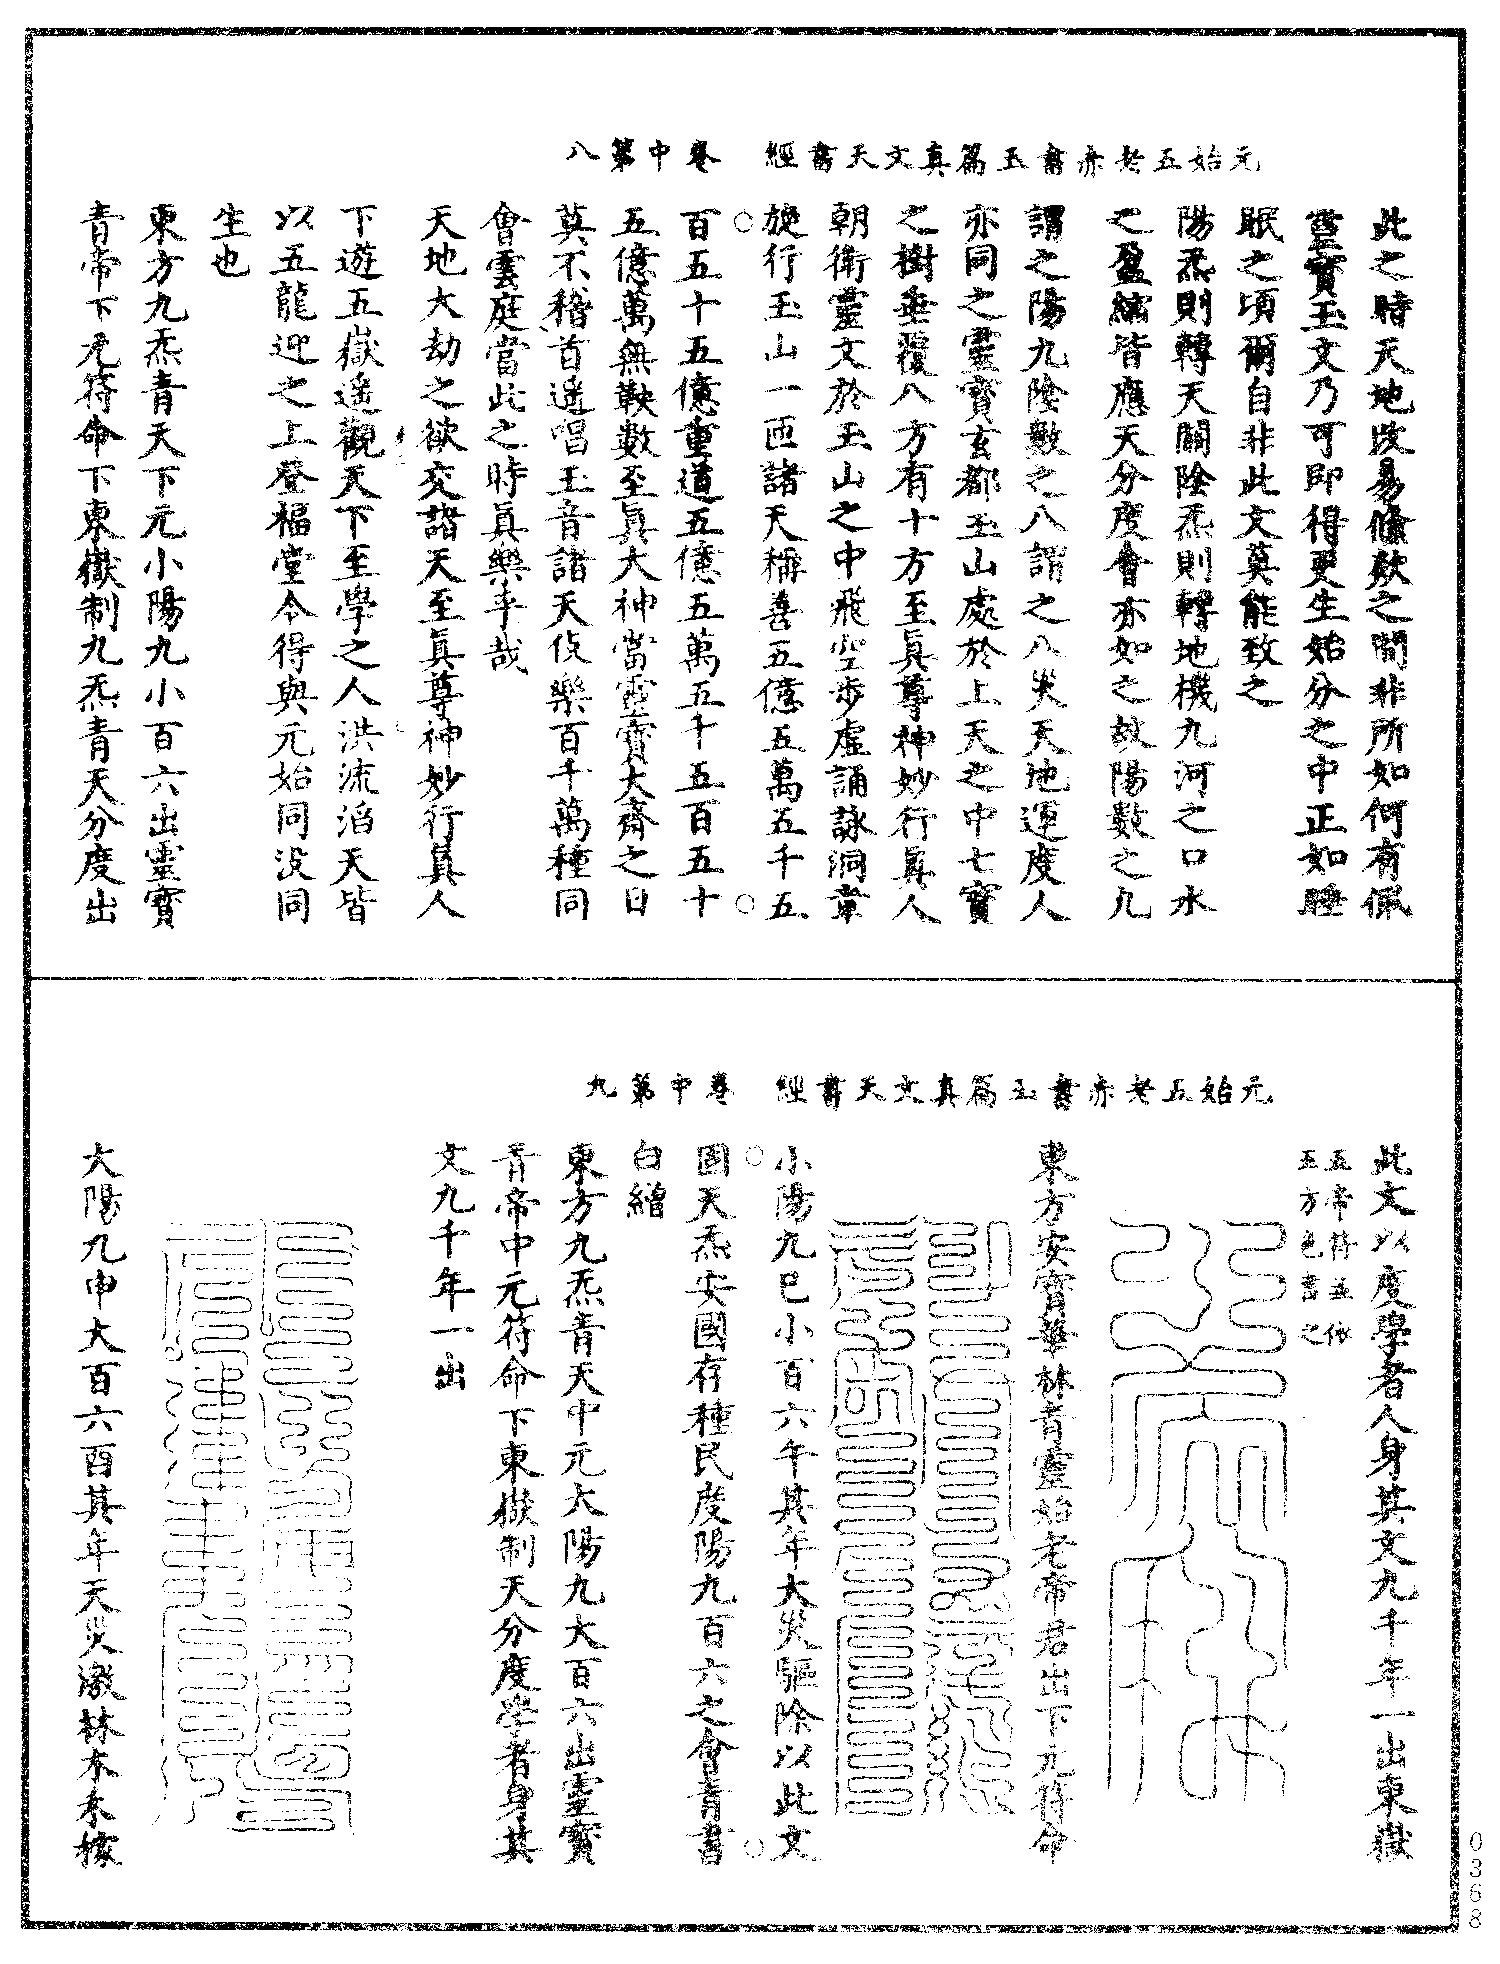 元始五老赤書玉篇真文天書經　卷中第八
此之時天地改易倏欻之間非所如何有佩
靈寶玉文乃可即得更生始分之中正如睡
眠之頃爾自非此文莫能致之
陽炁則轉天關陰炁則轉地機九河之口水
之盈縮皆應天分度會亦如之故陽數之九
謂之陽九陰數之八謂之八災天地運度人
亦同之靈寶玄都玉山處於上天之中七寶
之樹垂覆八方有十方至真尊神妙行真人
朝衛靈文於玉山之中飛空步虛誦詠洞章
旋行玉山一匝諸天稱善五億五萬五千五
百五十五億重道五億五萬五千五百五十
五億萬無鞅數至真大神當靈寶大齋之日
莫不稽首遙唱玉音諸天伎樂百千萬種同
會雲庭當此之時真樂乎哉
天地大劫之欲交諸天至真尊神妙行真人
下遊五嶽遙觀天下至學之人洪流滔天皆
以五龍迎之上登福堂令得與元始同沒同
生也
東方九炁青天下元小陽九小百六出靈寶
青帝下元符命下東嶽制九炁青天分度出
元始五老赤書玉篇真文天書經　卷中第九
此文以度學者人身其文九千年一出東嶽
五帝符並依
五方色書之
東方安寶華林青靈始老帝君出下元符命
小陽九巳小百六午其年大災驅除以此文
固天炁安國存種民度陽九百六之會青書
白繒
東方九炁青天中元大陽九大百六出靈寶
青帝中元符命下東嶽制天分度學者身其
文九千年一出
大陽九申大百六酉其年天災激林木禾稼
0368